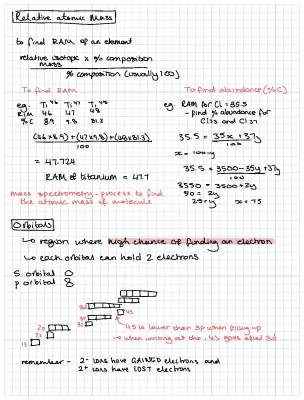 Relative atomic Mass
to find RAM of an element
relative isotope mass x % composition
% composition (usually 100)
To find RAM
To find abundance (%C)
eg. Ti 46 Ti 47 Ti 48
RIM 46 47 48
%C 8.9 9.8 81.3
(46x8.9)+(47x9.8)+(48x81.3)
100
= 47.724
RAM of titanium = 47.7
eg. RAM for Cl = 35.5
- find % abundance for
Cl 35 and Cl 37
35.5 = 35x + 37y
100
x = 100-y
35.5 = 3500-35y+37y
100
3550 = 3500+2y
50 = 2y
25 = y x = 75
mass spectrometry - process to find
the atomic mass of molecule
Orbitals
↳ region where high chance of finding an electron
↳ each orbital can hold 2 electrons
S orbital O
p orbital 8
4s
3p
3s
2p
2s
1s
4s is lower than 3p when filling up
- when writing out the, 4s goes after 3d
remember - 2- ions have GAINED electrons and
2+ ions have LOST electrons